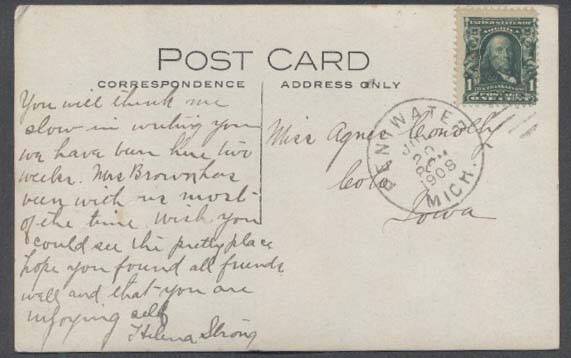 POST CARD
CORRESPONDENCE
ADDRESS ONLY
You will think me
slow in writing you
we have been here two
weeks. Mrs Brown has
been with us most
of the time wish you
could see the pretty place
hope you found all friends
well and that you are
injoying self
Helena Strong
Miss Agnes Conolly
Colo
Iowa
PENTWATER
MICH.
1908
1
ONE CENT